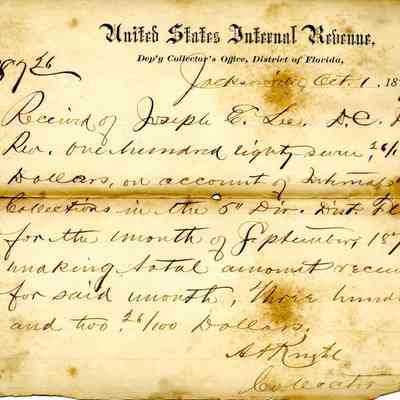 United States Internal Revenue,
Dep'y Collector's Office, District of Florida,
87 26
Jacksonville, Oct. 1. 18
Received of Joseph E. Lee. D.C.
Rev. one hundred eighty seven, 26/1
Dollars, on account of
Collections in the 6th Div. Dist. Fl
for the month of September 187
making total amount receiv
for said month, Three hund
and two 26/100 Dollars.
A A Knight
Collector